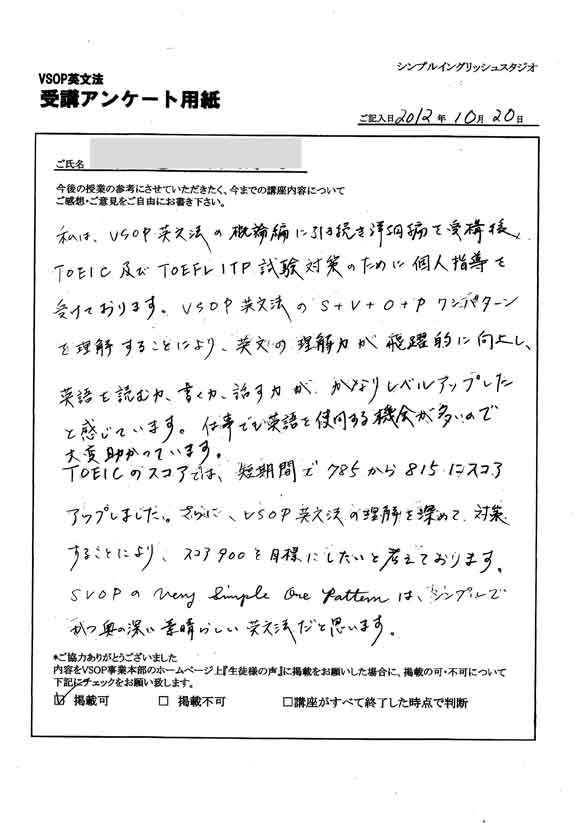 シンプルイングリッシュスタジオ
VSOP英文法
受講アンケート用紙
ご記入日 2012 年 10 月 20 日
ご氏名
今後の授業の参考にさせていただきたく、今までの講座内容について
ご感想・ご意見をご自由にお書き下さい。
私は、VSOP英文法の概論編に引き続き詳細編を受構後、
TOEIC及びTOEFL ITP試験対策のために個人指導を
受けております。VSOP英文法のS+V+O+Pワンパターン
を理解することにより、英文の理解力が飛躍的に向上し、
英語を読む力、書く力、話す力が、かなりレベルアップした
と感じています。仕事でも英語を使用する機会が多いので
大変助かっています。
TOEICのスコアでは、短期間で785から815にスコア
アップしました。さらに、VSOP英文法の理解を深めて、対策
することにより、スコア900を目標にしたいと考えております。
SVOPのVery Simple One Patternは、シンプルで
かつ奥の深い素晴らしい英文法だと思います。
*ご協力ありがとうございました
内容をVSOP事業本部のホームページ上『生徒様の声』に掲載をお願いした場合に、掲載の可・不可について
下記にチェックをお願い致します。
☑ 掲載可 □ 掲載不可 □講座がすべて終了した時点で判断